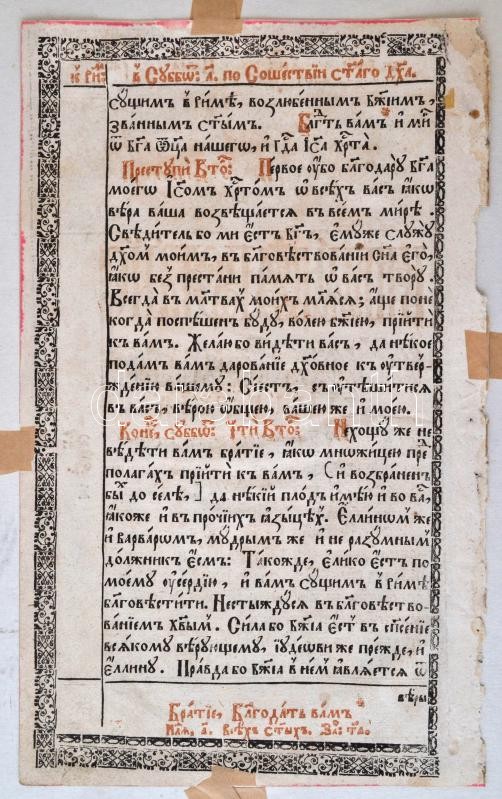 к҃ Ри҃: в Суббѡ: а҃. по Сошествїи ст҃аго Дх҃а.
сущимъ в Римѣ, возлюбеннымъ бж҃їимъ,
званнымъ ст҃ымъ. Блг҃ть вамъ и ми҃
ѿ бг҃а ѿц҃а нашегѡ, и гд҃а Іс҃а Хр҃та.
Преступи Вто҃: Первое убо благодарю бг҃а
моегѡ Іс҃омъ Хр҃томъ ѡ всѣхъ васъ, ꙗкѡ
вѣра ваша возвѣщается въ всемъ мирѣ.
Свѣдитель бо ми естъ бг҃ъ, емуже служу
дх҃омъ моимъ, въ благовѣствованїи сн҃а его,
ꙗкѡ без престани память ѡ васъ творю.
Всегда въ мл҃твахъ моихъ маяся; аще поне
когда поспѣшенъ буду, волею бж҃їею, прїити
къ вамъ. Желаю бо видѣти васъ, да нѣкое
подамъ вамъ дарованїе дх҃овное къ утвер-
жденїю вашому: Сїестъ, съутѣшитися
въ васъ, вѣрою ѡбщею, вашею же и моею.
Коне҃, суббѡ: Чти Вто҃: Нехощу же не
вѣдѣти вамъ братїе, ꙗкѡ множицею пре
полагахъ прїити къ вамъ, (и возбраненъ
бы҃ до селѣ,) да нѣкїй плодъ имѣю и во ва҃,
ꙗкоже и въ прочїихъ ꙗзыцѣхъ. Еллиномъ же
и варваромъ, мудрымъ же и не разумнымъ
должникъ есмъ: Такожде, елико естъ по
моему усердїю, и вамъ сущимъ в Римѣ
благовѣстити. Нестыждуся въ благовѣство-
ванїемъ хв҃ымъ. Сила бо бж҃їа естъ въ сп҃сенїе
всякому вѣрующему, їудеови же прежде, и
еллину. Правда бо бж҃їа в немъ ꙗвляется ѿ
вѣры
Братїе, Благодать вамъ
Нл҃я, а҃. всѣхъ ст҃ыхъ. За҃: та҃.
darabanth